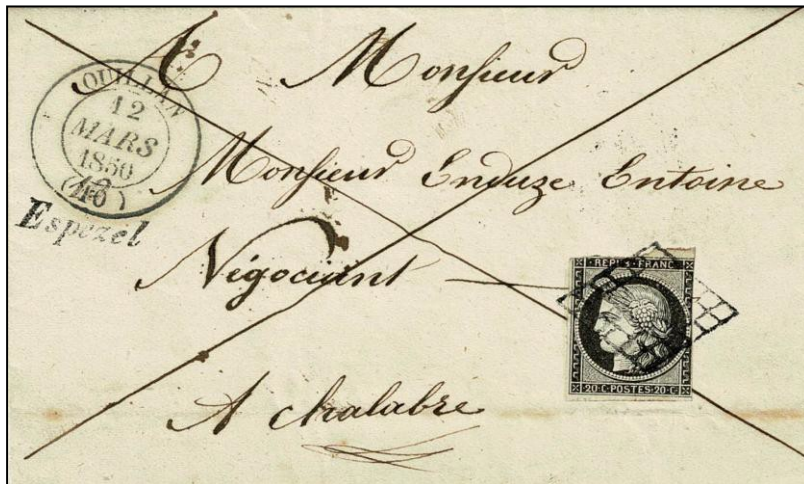 A Monsieur
QUILLAN
12
MARS
1850
(10)
Espezel
Monsieur Enduze Entoine
Négociant
A chalabre
REPUB. FRANC.
20·C·POSTES·20·C